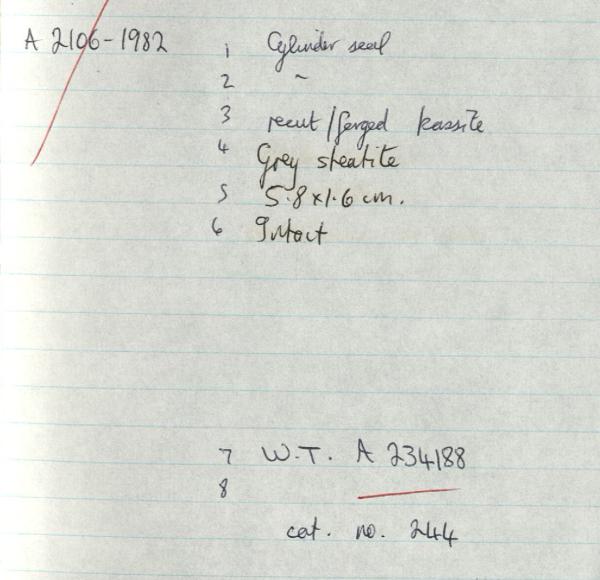 A 2106-1982 1 Cylinder seal
2 ~
3 recut/forged kassite
4 Grey steatite
5 5.8 x 1.6 cm.
6 Intact
7 W.T. A 234188
8
cat. no. 244